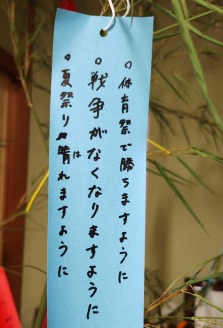 。体育祭で勝ちますように
。戦争がなくなりますように
。夏祭りは晴れますように